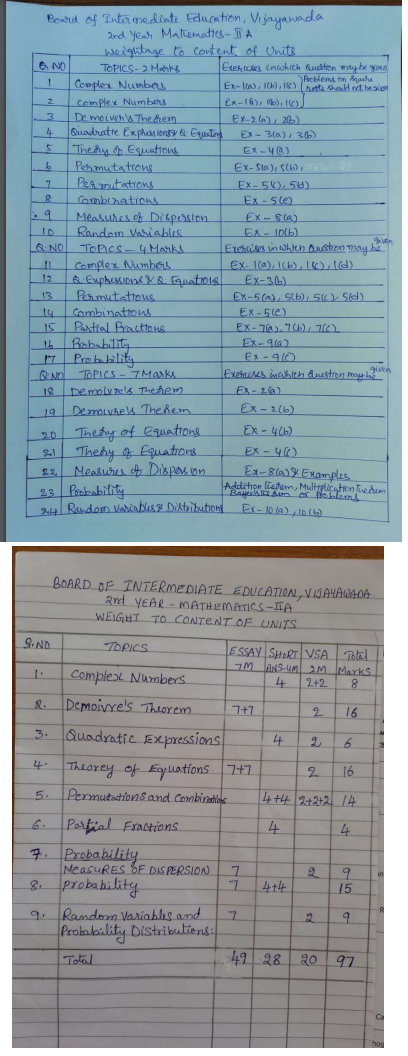 Board of Intermediate Education, Vijayawada
2nd Year Matnematics - II A
Weightage to Content of Units
Q.NO TOPICS - 2 Marks Exercises in which Question may be given
1 Complex Numbers Ex-1(a), 1(b), 1(c) } Problems on Square roots should not be given
2 complex Numbers Ex-1(a), 1(b), 1(c)
3 Demoivre's Theorem Ex-2(a), 2(b)
4 Quadratic Expressions & Equations Ex-3(a), 3(b)
5 Theory of Equations Ex-4(a)
6 Permutations Ex-5(a), 5(b),
7 Permutations Ex-5(c), 5(d)
8 Combinations Ex-5(e)
9 Measures of Dispersion Ex-8(a)
10 Random Variables Ex-10(b)
Q.NO TOPICS - 4 Marks Exercises in which Question may be given
11 Complex Numbers Ex-1(a), 1(b), 1(c), 1(d)
12 Q.Expressions & Q. Equations Ex-3(b)
13 Permutations Ex-5(a), 5(b), 5(c), 5(d)
14 Combinations Ex-5(e)
15 Partial Fractions Ex-7(a), 7(b), 7(c)
16 Probability Ex-9(a)
17 Probability Ex-9(c)
Q.NO TOPICS - 7 Marks Exercises in which Question may be given
18 Demoivre's Theorem Ex-2(a)
19 Demoivre's Theorem Ex-2(b)
20 Theory of Equations Ex-4(b)
21 Theory of Equations Ex-4(c)
22 Measures of Dispersion Ex-8(a) & Examples
23 Probability Addition theorem, Multiplication theorem
Bayer's theorem or Problems
24 Random Variables & Distributions Ex-10(a), 10(b)
BOARD OF INTERMEDIATE EDUCATION, VIJAYAWADA
2nd YEAR - MATHEMATICS - IIA
WEIGHT TO CONTENT OF UNITS
Q.NO TOPICS ESSAY SHORT VSA Total
7M ANS-4M 2M Marks
1. Complex Numbers 4 2+2 8
2. Demoivre's Theorem 7+7 2 16
3. Quadratic Expressions 4 2 6
4. Theorey of Equations 7+7 2 16
5. Permutations and Combinations 4+4 2+2+2 14
6. Partial Fractions 4 4
7. Probability
MEASURES OF DISPERSION 7 2 9
8. probability 7 4+4 15
9. Random Variables and 7 2 9
Probability Distributions:
Total 49 28 20 97